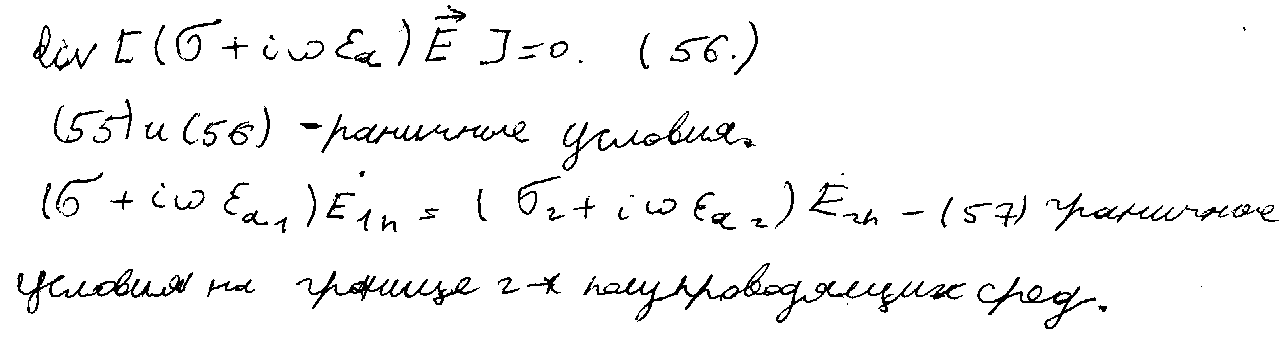 div [(σ + iωε_a) E⃗ ] = 0. (56.)
(55) и (56) - раничные условия.
(σ + iωε_{a1}) Ė_{1n} = (σ_2 + iωε_{a2}) Ė_{2n} - (57) граничное
условия на границе 2-х полупроводящих сред.